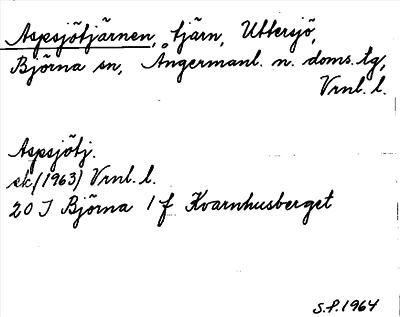 Aspsjötjärnen, tjärn, Uttersjö,
Björna sn, Ångermanl. n. doms. tg,
Vrnl. l.
Aspsjötj.
ek (1963) Vrnl. l.
20 J Björna 1 f Kvarnhusberget
S.P. 1964